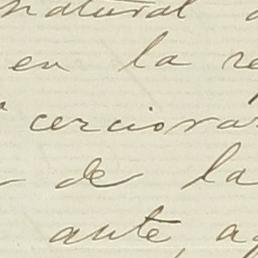 natural
en la re
cerciora
de la
ante, a